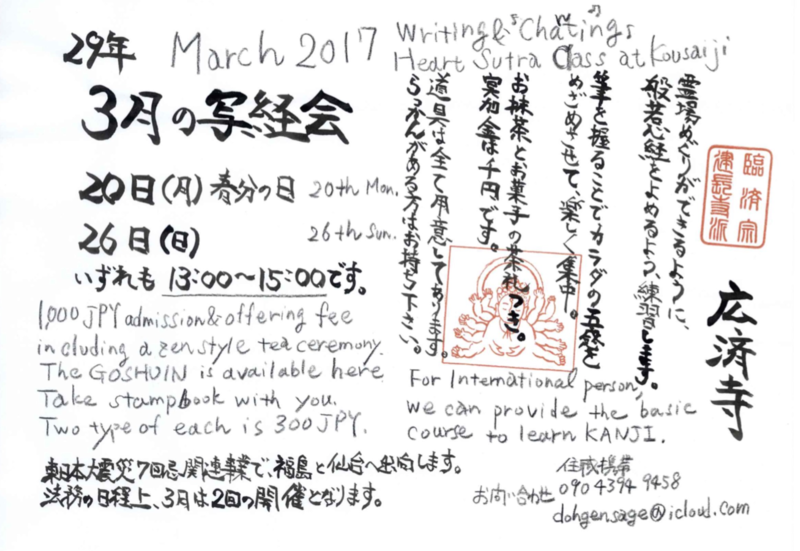 29年 March 2017
Writing & Chantings
Heart Sutra Class at Kousaiji
3月の写経会
20日(月)春分の日 20th Mon.
26日(日) 26th Sun.
いずれも 13:00〜15:00です。
霊場めぐりができるように、
般若心経をよめるよう練習します。
筆を握ることでカラダの五感を
めざめさせて、楽しく集中。
お抹茶とお菓子の茶礼つき。
実加金は千円です。
道具は全て用意してあります。
らっかんがある方はお持ち下さい。
臨済宗
建長寺派
広済寺
1,000 JPY admission & offering fee
including a zen style tea ceremony.
The GOSHUIN is available here
Take stampbook with you.
Two type of each is 300 JPY.
For International person,
we can provide the basic
course to learn KANJI.
東日本大震災7回忌関連事業で、福島と仙台へ出向します。
法務の日程上、3月は2回の開催となります。
お問い合わせ
住職携帯
090 4394 9458
dohgensage@icloud.com